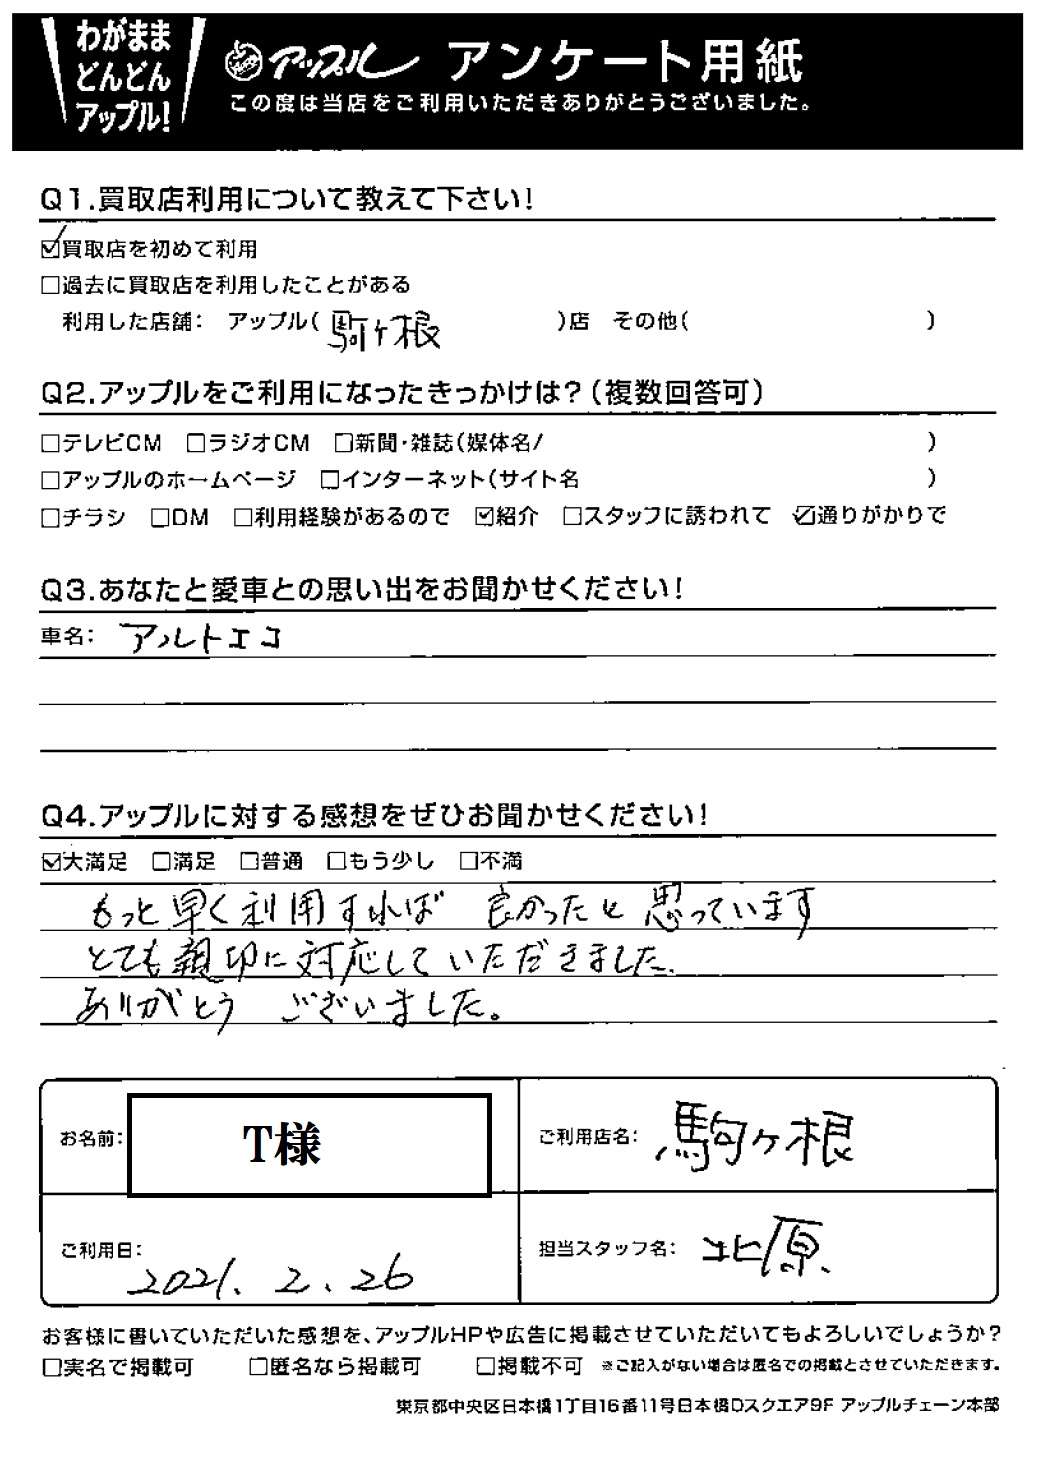 わがまま
どんどん
アップル!
アップル アンケート用紙
この度は当店をご利用いただきありがとうございました。
Q1.買取店利用について教えて下さい!
☑買取店を初めて利用
□過去に買取店を利用したことがある
利用した店舗: アップル(駒ヶ根 )店 その他( )
Q2.アップルをご利用になったきっかけは?(複数回答可)
□テレビCM □ラジオCM □新聞・雑誌(媒体名/ )
□アップルのホームページ □インターネット(サイト名 )
□チラシ □DM □利用経験があるので ☑紹介 □スタッフに誘われて ☑通りがかりで
Q3.あなたと愛車との思い出をお聞かせください!
車名: アルトエコ
Q4.アップルに対する感想をぜひお聞かせください!
☑大満足 □満足 □普通 □もう少し □不満
もっと早く利用すれば 良かったと思っています
とても親切に対応していただきました.
ありがとう ございました。
お名前: T様
ご利用店名: 駒ヶ根
ご利用日: 2021.2.26
担当スタッフ名: 北原
お客様に書いていただいた感想を、アップルHPや広告に掲載させていただいてもよろしいでしょうか?
□実名で掲載可 □匿名なら掲載可 □掲載不可 ※ご記入がない場合は匿名での掲載とさせていただきます。
東京都中央区日本橋1丁目16番11号日本橋Dスクエア9F アップルチェーン本部